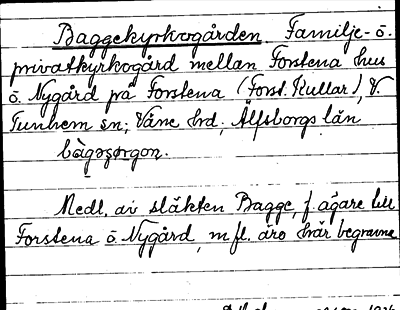 Baggekyrkogården. Familje- o.
privatkyrkogård mellan Forstena hus
o. Nygård på Forstena (Forst. Kullar), V.
Tunhem sn; Väne hrd, Älfsborgs län
Medl. av släkten Bagge, f. ägare till
Forstena o. Nygård, m.fl. äro här begravna